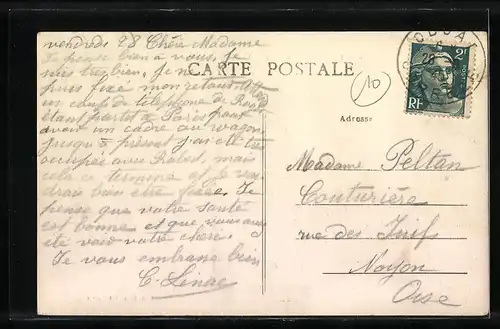 vendredi 28 Chère Madame
Je pense bien à vous. Je
suis très bien. Je ne
puis fixé mon retour
un coup de téléphone de
étant partit à Paris pour
avoir un cadre au wagon
jusqu'à présent j'ai été très
occupée avec Robert, mais
cela ce termine et je
drais bien être fixée. Je
pense que votre santé
est bonne et que vous avez
été voir votre
Je vous embrasse bien
C. Linac
CARTE POSTALE
10
Adresse
Madame Peltan
Couturière
rue des Juifs
Noyon
Oise
2F
RF